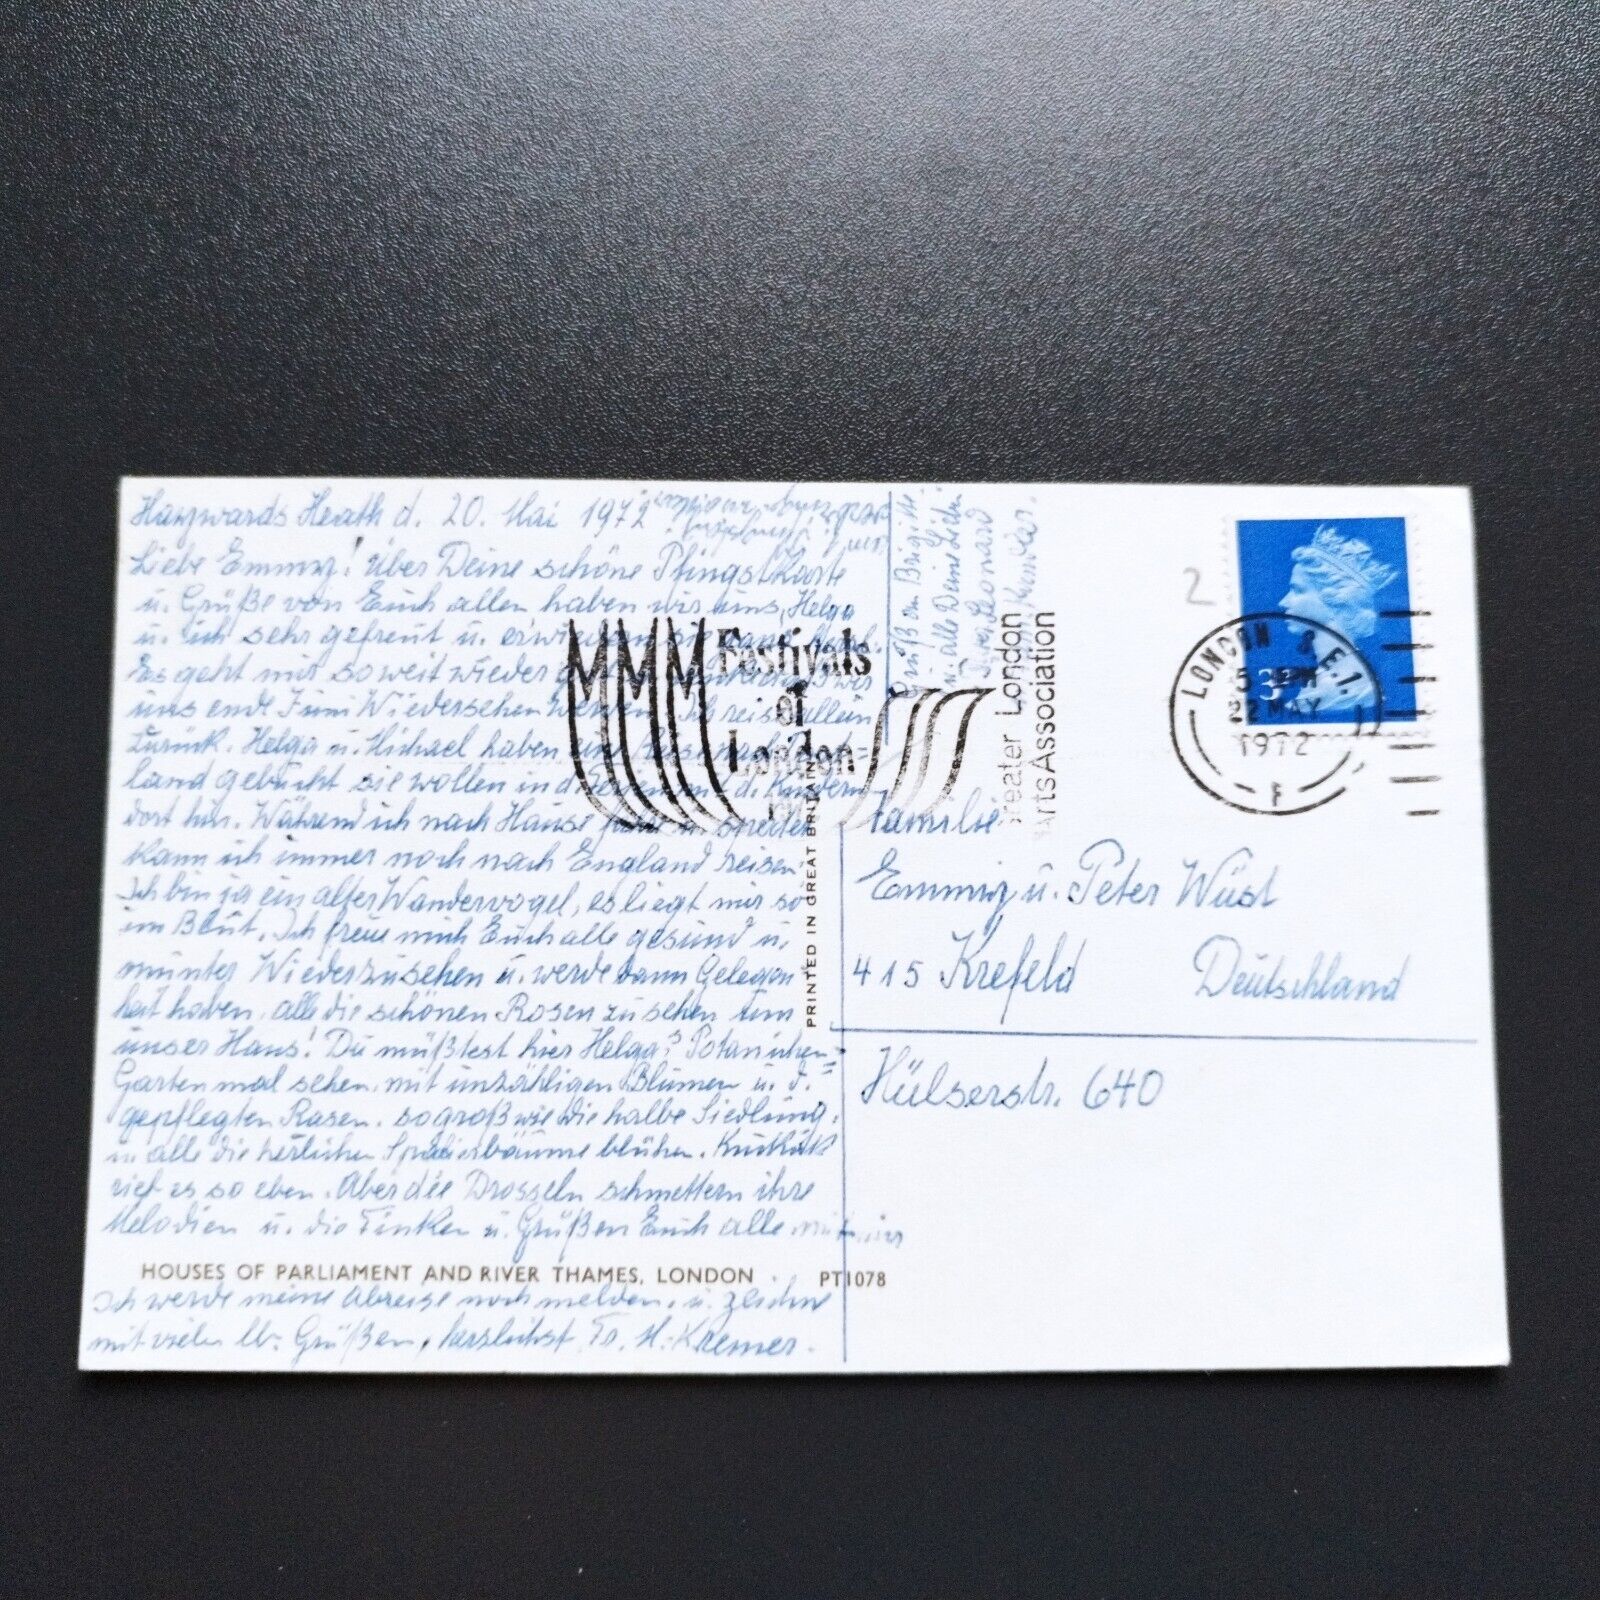 Haywards Heath d. 20. Mai 1972
Liebe Emmy! Über Deine schöne Pfingstkarte
u. Grüße von Euch allen haben wir uns, Helga
u. ich sehr gefreut u. erwiedern sie
Es geht mir soweit wieder wir
uns ende Juni Wiedersehen werden. Ich reise allein
zurück. Helga u. Michael haben eine Reise nach
land gebucht sie wollen in d. Ferien mit d. Kindern
dort hin. Während ich nach Hause fahre u. später
kann ich immer noch nach England reisen.
Ich bin ja ein alter Wandervogel, es liegt mir so
im Blut. Ich freue mich Euch alle gesund u.
munter Wiederzusehen u. werde dann Gelegen-
heit haben, alle die schönen Rosen zu sehen um
unser Haus! Du müßtest hier Helga's Botanischen
Garten mal sehen, mit unzähligen Blumen u. d.
gepflegten Rasen, so groß wie die halbe Siedlung.
u. alle die herlichen bäume blühen. Kukuk
rief es so eben. Aber die Drosseln schmettern ihre
Melodien u. die Finken u. Grüßen Euch alle mit mir
HOUSES OF PARLIAMENT AND RIVER THAMES, LONDON PT1078
Ich werde meine Abreise noch melden, u. zeichne
mit vielen lb. Grüßen, herzlichst Fr. M. Kremer.
Gruß an Brigitte
u. alle Deine Lieben
Leonard
u. Kinder.
Festivals
of
London
Greater London
Arts Association
PRINTED IN GREAT BRITAIN
2
LONDON S.E.1.
5 PM
22 MAY
1972
F
3P
Familie
Emmy u. Peter Wüst
415 Krefeld Deutschland
Hülserstr. 640